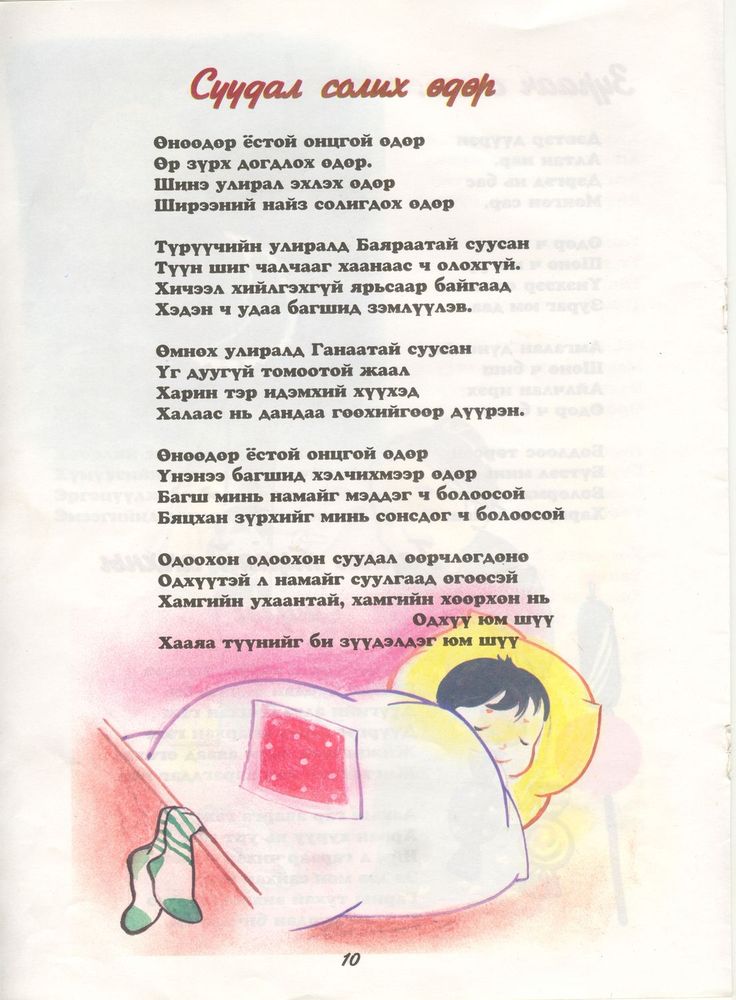 Суудал солих өдөр
Өнөөдөр ёстой онцгой өдөр
Өр зүрх догдлох өдөр.
Шинэ улирал эхлэх өдөр
Ширээний найз солигдох өдөр
Түрүүчийн улиралд Баяраатай суусан
Түүн шиг чалчааг хаанаас ч олохгүй.
Хичээл хийлгэхгүй ярьсаар байгаад
Хэдэн ч удаа багшид зэмлүүлэв.
Өмнөх улиралд Ганаатай суусан
Үг дуугүй томоотой жаал
Харин тэр идэмхий хүүхэд
Халаас нь дандаа гоохийгөөр дүүрэн.
Өнөөдөр ёстой онцгой өдөр
Үнэнээ багшид хэлчихмээр өдөр
Багш минь намайг мэддэг ч болоосой
Бяцхан зүрхийг минь сонсдог ч болоосой
Одоохон одоохон суудал өөрчлөгдөнө
Одхүүтэй л намайг суулгаад өгөөсэй
Хамгийн ухаантай, хамгийн хөөрхөн нь
Одхүү юм шүү
Хааяа түүнийг би зүүдэлдэг юм шүү
10